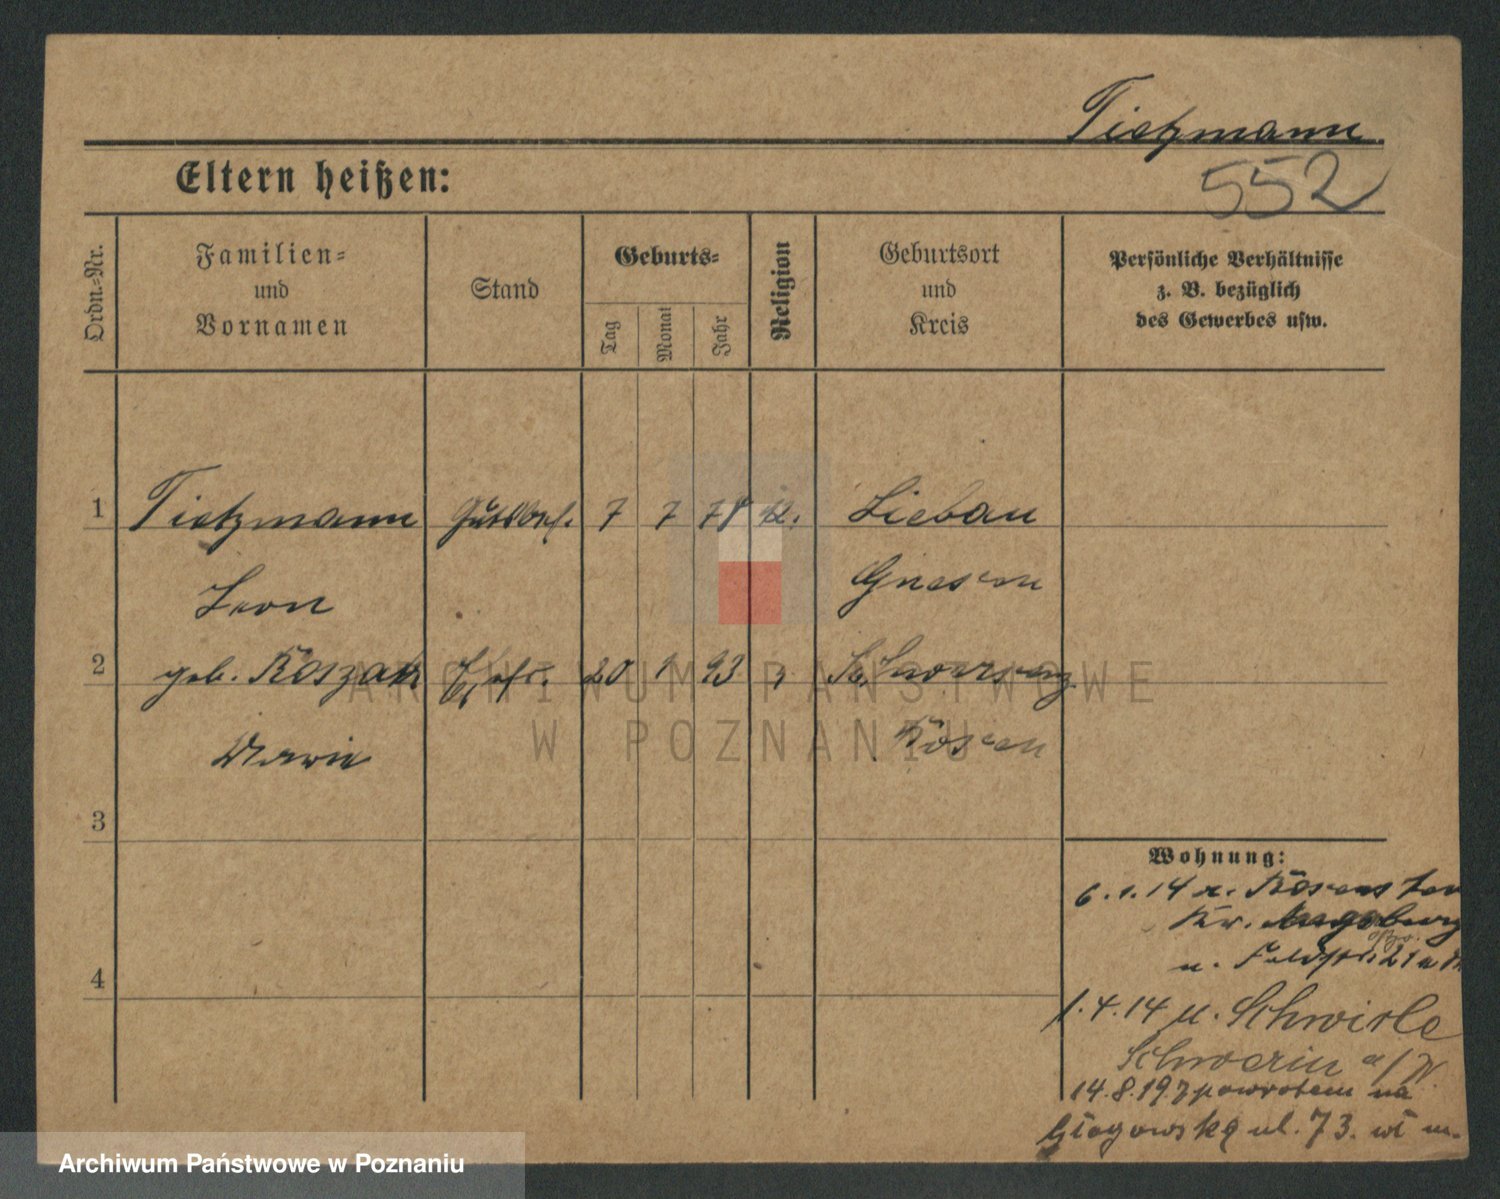 Tietzmann.
552
Eltern heißen:
Ordn.-Nr.
Familien-
und
Vornamen
Stand
Geburts-
Tag
Monat
Jahr
Religion
Geburtsort
und
Kreis
Persönliche Verhältnisse
z. B. bezüglich
des Gewerbes usw.
1 Tietzmann Gutsbes. 7 7 78 k. Liebau
Leon Gnesen
2 geb. Koszak 20 1 93 Schwersenz
Marie Posen
3
4
Wohnung:
6.1.14 n.
Kr.
n. 21
1.4.14 n. Schwirle
Schwerin a/W.
14.8.19 z powrotem na
Głogowską ul. 73. wł m.
ARCHIWUM PAŃSTWOWE
W POZNANIU
Archiwum Państwowe w Poznaniu